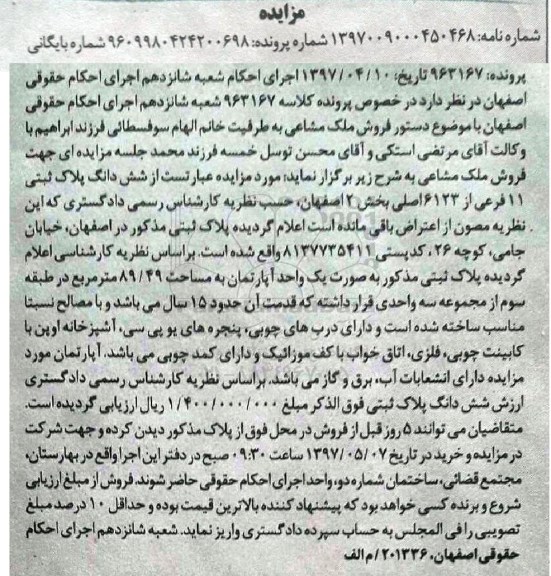 مزایده
شماره نامه: ۱۳۹۷۰۰۹۰۰۰۴۵۰۴۶۸ شماره پرونده: ۹۶۰۹۹۸۰۴۲۴۲۰۰۶۹۸ شماره بایگانی
پرونده: ۹۶۳۱۶۷ تاریخ: ۱۳۹۷/۰۴/۱۰ اجرای احکام شعبه شانزدهم اجرای احکام حقوقی
اصفهان در نظر دارد در خصوص پرونده کلاسه ۹۶۳۱۶۷ شعبه شانزدهم اجرای احکام حقوقی
اصفهان با موضوع دستور فروش ملک مشاعی به طرفیت خانم الهام سوفسطائی فرزند ابراهیم با
وکالت آقای مرتضی استکی و آقای محسن توسل خمسه فرزند محمد جلسه مزایده ای جهت
فروش ملک مشاعی به شرح زیر برگزار نماید: مورد مزایده عبارتست از شش دانگ پلاک ثبتی
۱۱ فرعی از ۶۱۲۳ اصلی بخش ۲ اصفهان، حسب نظریه کارشناس رسمی دادگستری که این
نظریه مصون از اعتراض باقی مانده است اعلام گردیده پلاک ثبتی مذکور در اصفهان، خیابان
جامی، کوچه ۲۶، کدپستی ۸۱۳۷۷۳۵۴۱۱ واقع شده است. براساس نظریه کارشناسی اعلام
گردیده پلاک ثبتی مذکور به صورت یک واحد آپارتمان به مساحت ۸۹/۴۹ مترمربع در طبقه
سوم از مجموعه سه واحدی قرار داشته که قدمت آن حدود ۱۵ سال می باشد و با مصالح نسبتا
مناسب ساخته شده است و دارای درب های چوبی، پنجره های یو پی سی، آشپزخانه اوپن با
کابینت چوبی، فلزی، اتاق خواب با کف موزائیک و دارای کمد چوبی می باشد. آپارتمان مورد
مزایده دارای انشعابات آب، برق و گاز می باشد. براساس نظریه کارشناس رسمی دادگستری
ارزش شش دانگ پلاک ثبتی فوق الذکر مبلغ ۱/۴۰۰/۰۰۰/۰۰۰ ریال ارزیابی گردیده است.
متقاضیان می توانند ۵ روز قبل از فروش در محل فوق از پلاک مذکور دیدن کرده و جهت شرکت
در مزایده و خرید در تاریخ ۱۳۹۷/۰۵/۰۷ ساعت ۰۹:۳۰ صبح در دفتر این اجرا واقع در بهارستان،
مجتمع قضائی، ساختمان شماره دو، واحد اجرای احکام حقوقی حاضر شوند. فروش از مبلغ ارزیابی
شروع و برنده کسی خواهد بود که پیشنهاد کننده بالاترین قیمت بوده و حداقل ۱۰ درصد مبلغ
تصویبی را فی المجلس به حساب سپرده دادگستری واریز نماید. شعبه شانزدهم اجرای احکام
حقوقی اصفهان، ۲۰۱۳۳۶/م الف